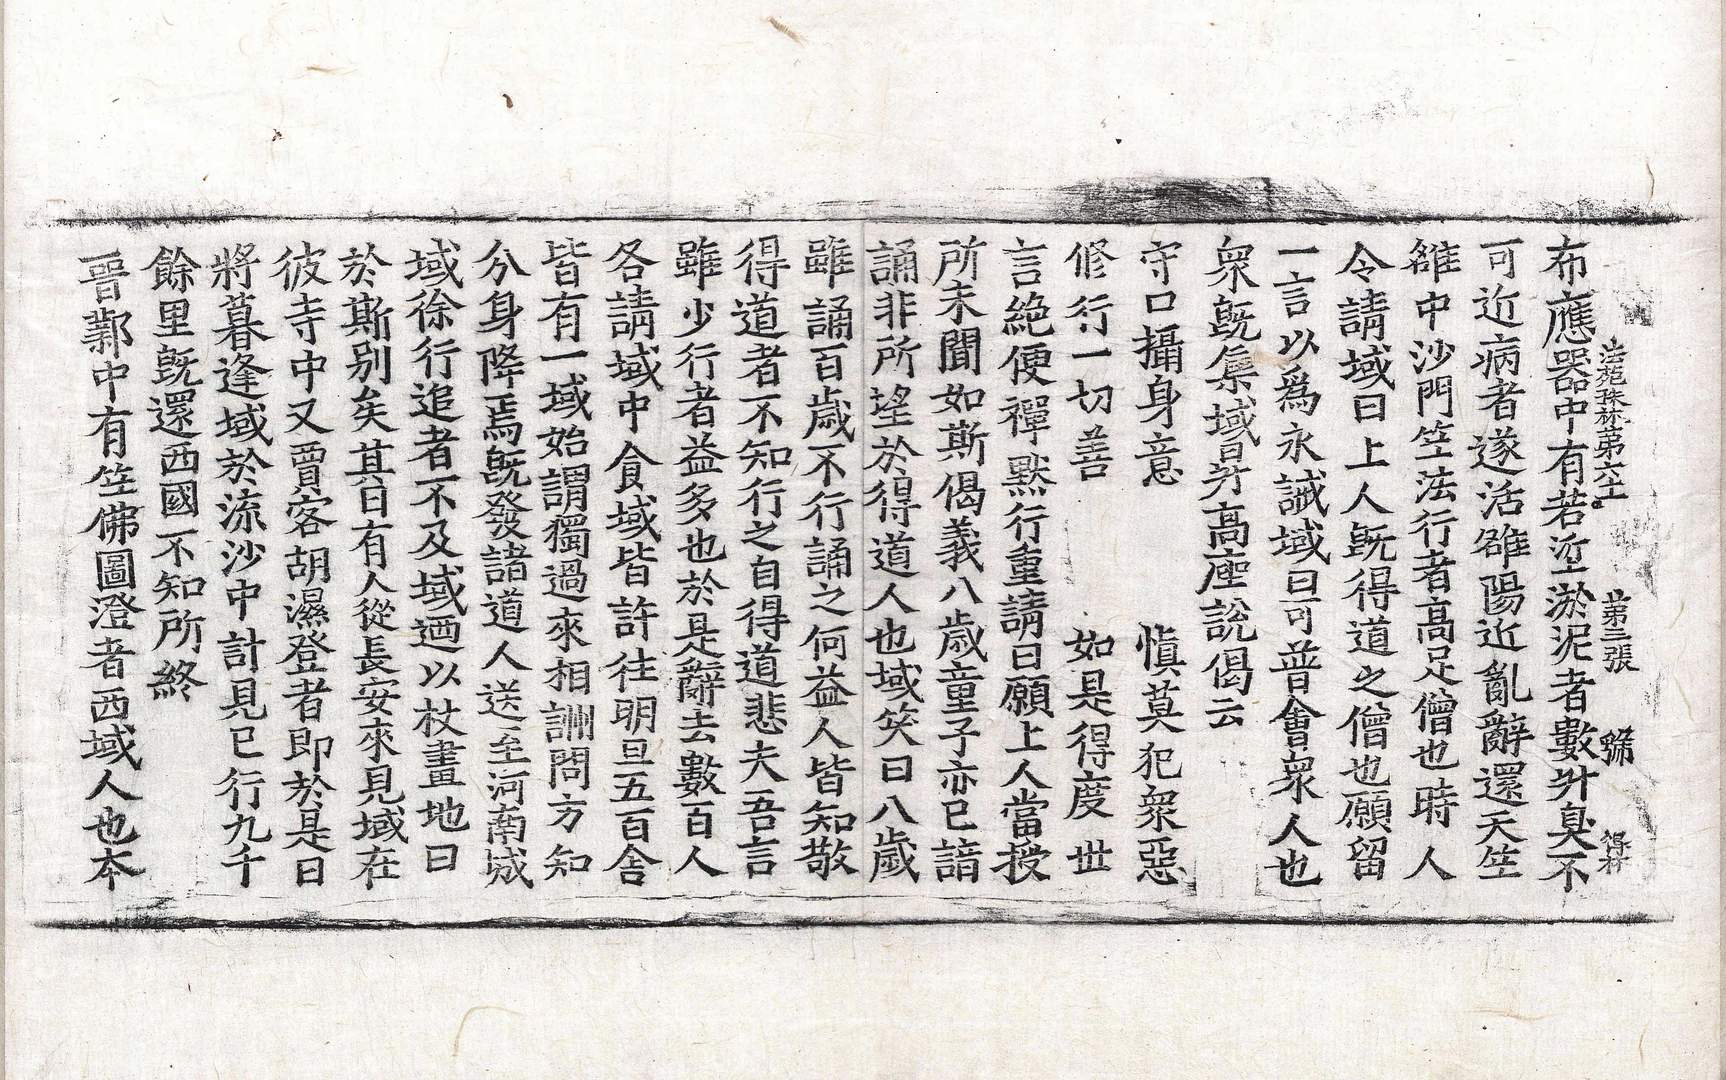 法苑珠林第六十一 第三張 號 得林
布應器中有若近淤泥者數升臭不
可近病者遂活雒陽近亂辭還天竺
雒中沙門竺法行者高足僧也時人
令請域曰上人既得道之僧也願留
一言以爲永誡域曰可普會衆人也
衆既集域昇高座說偈云
守口攝身意 愼莫犯衆惡
修行一切善 如是得度世
言絶便禪默行重請曰願上人當授
所未聞如斯偈義八歲童子亦已諳
誦非所望於得道人也域笑曰八歲
雖誦百歲不行誦之何益人皆知敬
得道者不知行之自得道悲夫吾言
雖少行者益多也於是辭去數百人
各請域中食域皆許往明旦五百舍
皆有一域始謂獨過來相詶問方知
分身降焉既發諸道人送至河南城
域徐行追者不及域迺以杖畫地曰
於斯别矣其日有人從長安來見域在
彼寺中又賈客胡濕登者即於是日
將暮逢域於流沙中計見已行九千
餘里既還西國不知所終
晉鄴中有竺佛圖澄者西域人也本